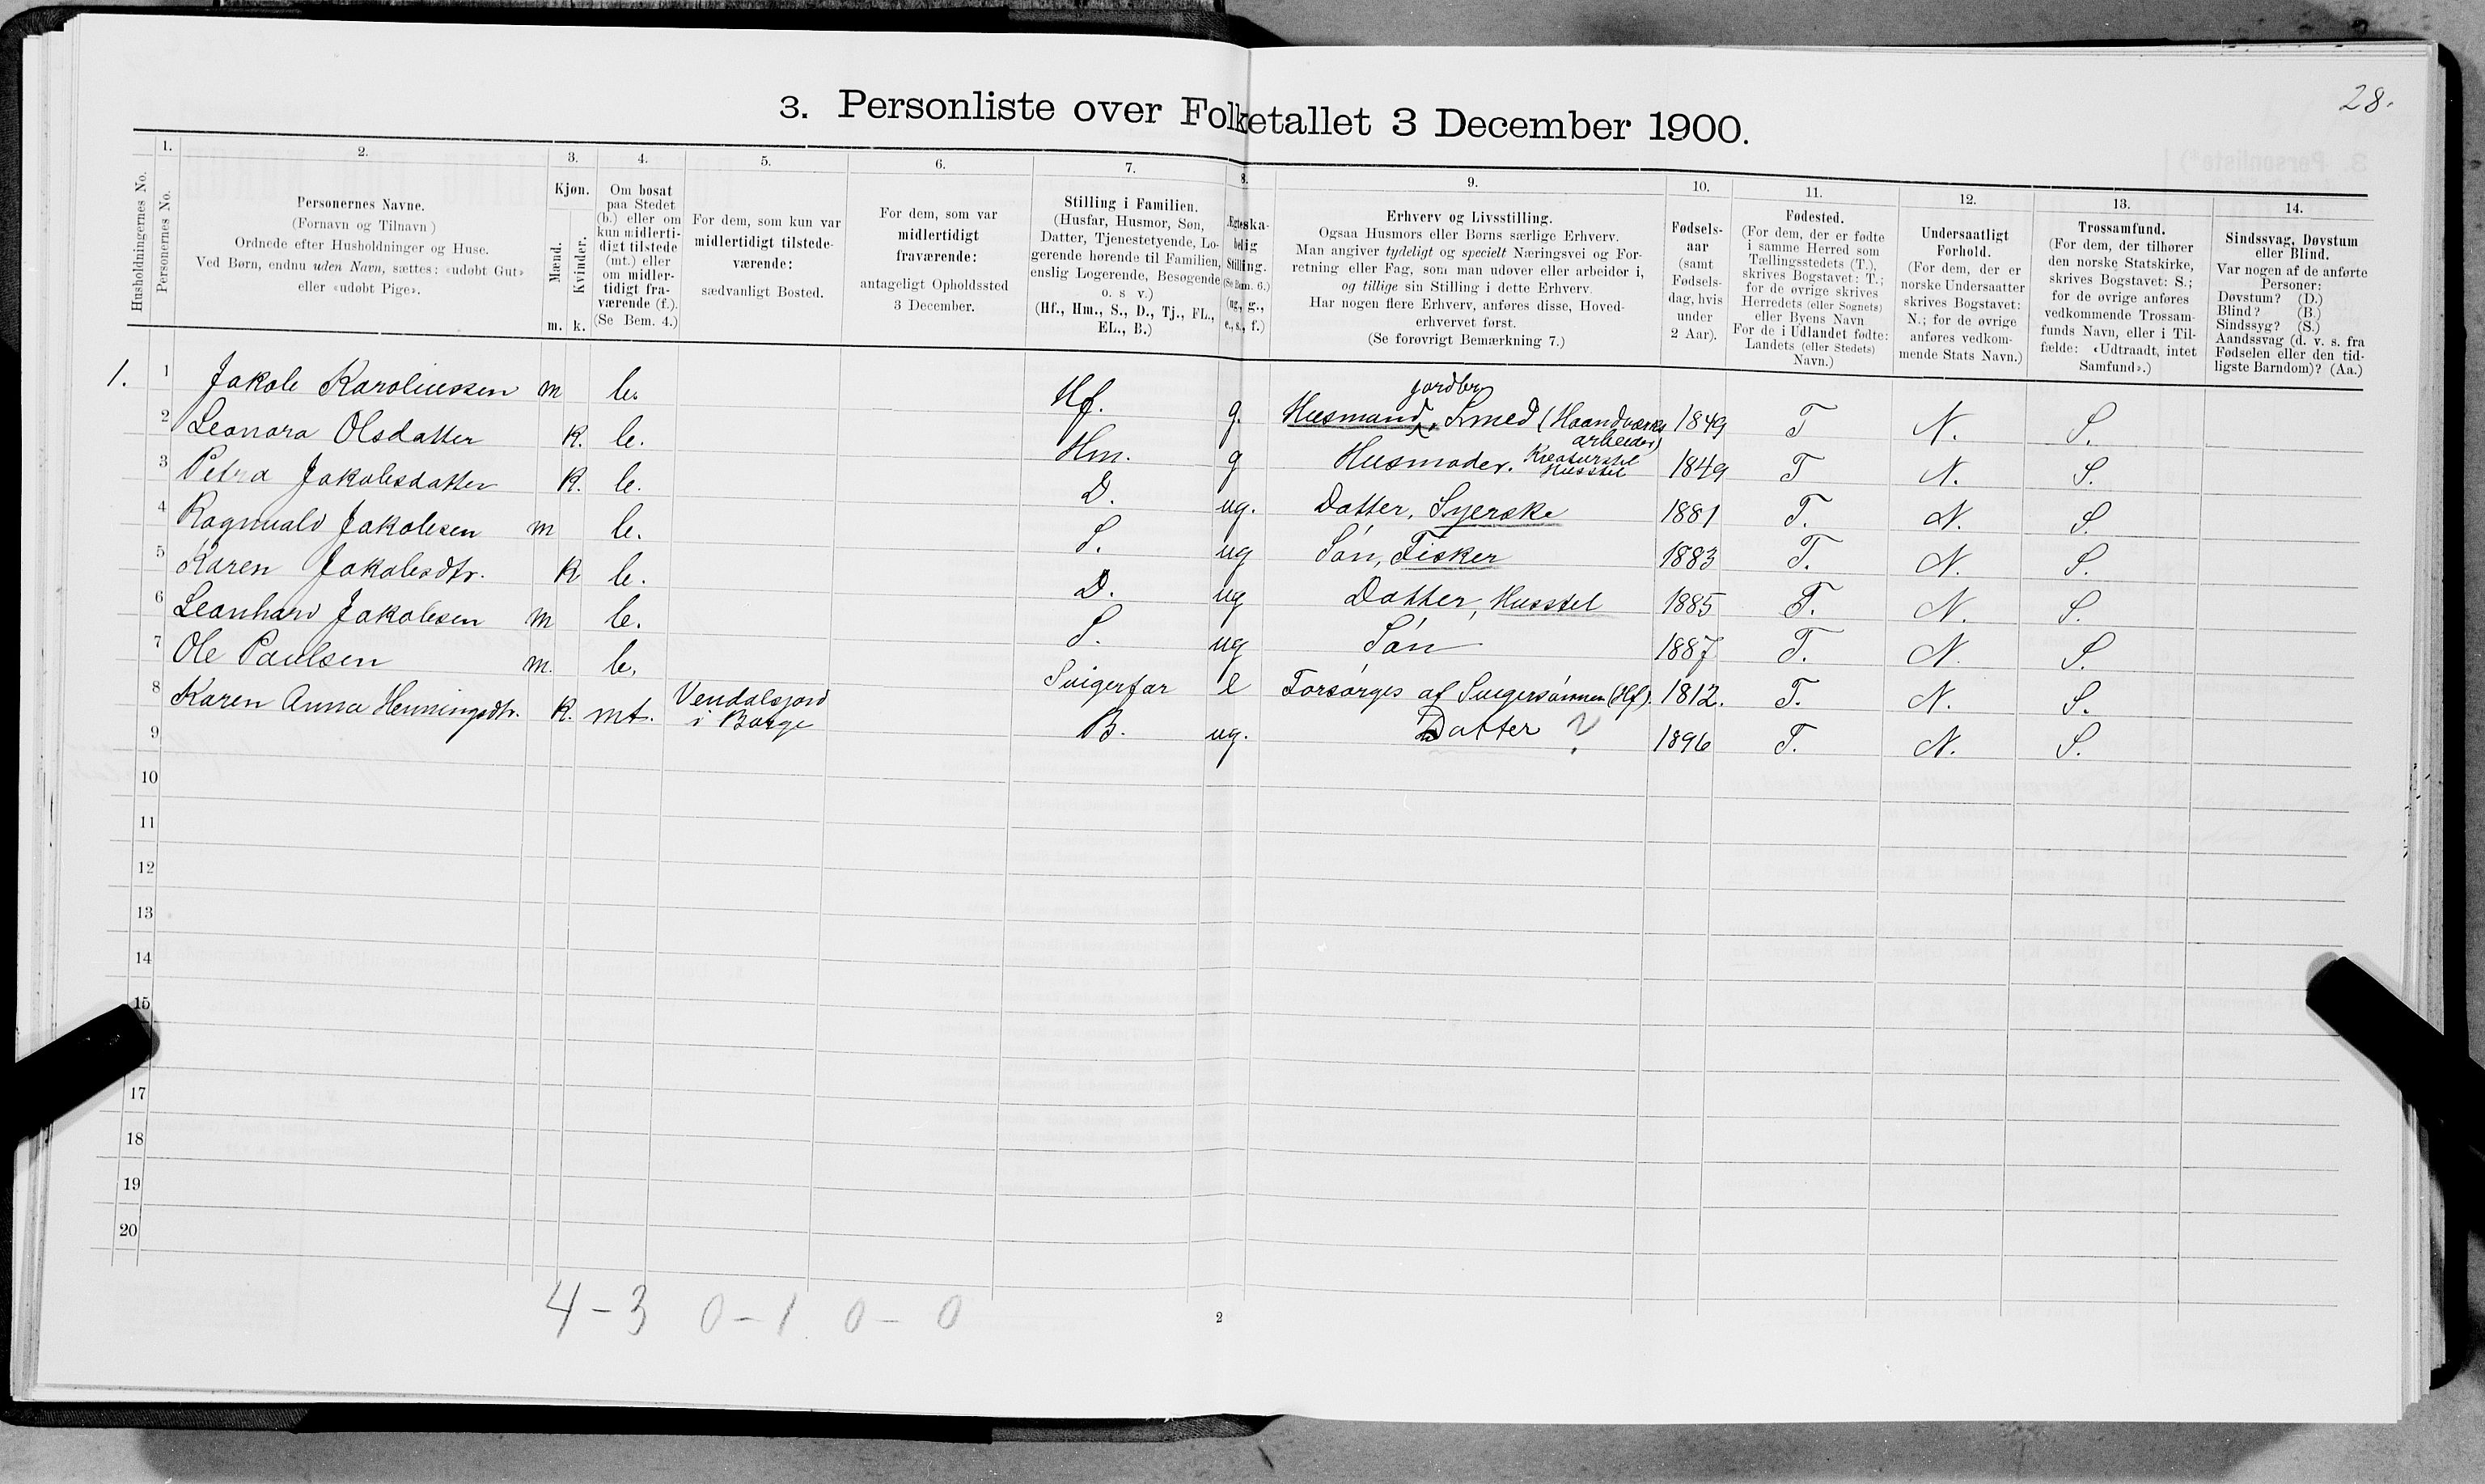 28.
3. Personliste over Folketallet 3 December 1900.
Husholdningernes No.
1.
Personernes No.
2.
Personernes Navne.
(Fornavn og Tilnavn)
Ordnede efter Husholdninger og Huse.
Ved Børn, endnu uden Navn, sættes: «udøbt Gut»
eller «udøbt Pige».
3.
Kjøn.
Mænd.
Kvinder.
m. k.
4.
Om bosat
paa Stedet
(b.) eller om
kun midlerti-
digt tilstede
(mt.) eller
om midler-
tidigt fra-
værende (f.).
(Se Bem. 4.)
5.
For dem, som kun var
midlertidigt tilstede-
værende:
sædvanligt Bosted.
6.
For dem, som var
midlertidigt
fraværende:
antageligt Opholdssted
3 December.
7.
Stilling i Familien.
(Husfar, Husmor, Søn,
Datter, Tjenestetyende, Lo-
gerende hørende til Familien,
enslig Logerende, Besøgende
o. s v.)
(Hf., Hm., S., D., Tj., FL.,
EL., B.)
8.
Ægteska-
belig
Stilling.
(Se Bem. 6.)
(ug., g.,
e., s., f.)
9.
Erhverv og Livsstilling.
Ogsaa Husmors eller Børns særlige Erhverv.
Man angiver tydeligt og specielt Næringsvei og For-
retning eller Fag, som man udøver eller arbeider i,
og tillige sin Stilling i dette Erhverv.
Har nogen flere Erhverv, anføres disse, Hoved-
erhvervet først.
(Se forøvrigt Bemærkning 7.)
10.
Fødsels-
aar
(samt
Fødsels-
dag, hvis
under
2 Aar).
11.
Fødested.
(For dem, der er fødte
i samme Herred som
Tællingsstedets (T.),
skrives Bogstavet: T.;
for de øvrige skrives
Herredets (eller Sognets)
eller Byens Navn
For de i Udlandet fødte:
Landets (eller Stedets)
Navn.)
12.
Undersaatligt
Forhold.
(For dem, der er
norske Undersaatter
skrives Bogstavet:
N.; for de øvrige
anføres vedkom-
mende Stats Navn.)
13.
Trossamfund.
(For dem, der tilhører
den norske Statskirke,
skrives Bogstavet: S.;
for de øvrige anføres
vedkommende Trossam-
funds Navn, eller i Til-
fælde: «Udtraadt, intet
Samfund».)
14.
Sindssvag, Døvstum
eller Blind.
Var nogen af de anførte
Personer:
Døvstum? (D.)
Blind? (B.)
Sindssyg? (S.)
Aandssvag (d. v. s. fra
Fødselen eller den tid-
ligste Barndom)? (Aa.)
1. 1 Jakob Karoliussen m b. Hf. g. Husmand jordbr, Smed (Haandværks arbeider) 1849 T N. S.
2 Leonora Olsdatter K. b. Hm. g Husmoder. Kreaturstel Husstel 1849 T N. S.
3 Petra Jakobsdatter K. b. D. ug. Datter, Syerske 1881 T. N. S.
4 Ragnvald Jakobsen m b. S. ug Søn, Fisker 1883 T. N. S.
5 Karen Jakobsdtr. K b. D. ug Datter, Husstel 1885 T. N. S.
6 Leonhard Jakobsen m b. S. ug Søn 1887 T. N. S.
7 Ole Paulsen m. b. Svigerfar e Forsørges af Svigersønnen (Hf). 1812. T. N. S.
8 Karen Anna Henningsdtr. K. mt. Vendalsjord i Borge B. ug. Datter ? 1896 T. N. S.
9
10
11
12
13
14
15
17
18
19
20
4 - 3 0 - 1 0 - 0
2